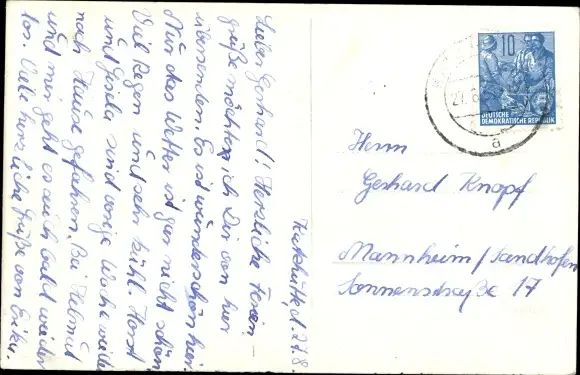 d. 27.8.
Lieber Gerhard! Herzliche Ferien-
grüße möchte ich Dir von hier
übersenden. Es ist wunderschön hier.
Nur das Wetter ist gar nicht schön.
Viel Regen und sehr kühl. Horst
und Gisela sind vorige Woche wieder
nach Hause gefahren. Bei Helmut
und mir geht es auch bald wieder
los. Viele herzliche Grüße von
10
DEUTSCHE
DEMOKRATISCHE REPUBLIK
27.8
a
Herrn
Gerhard Knopf
Mannheim/Sandhofen
Sonnenstraße 17